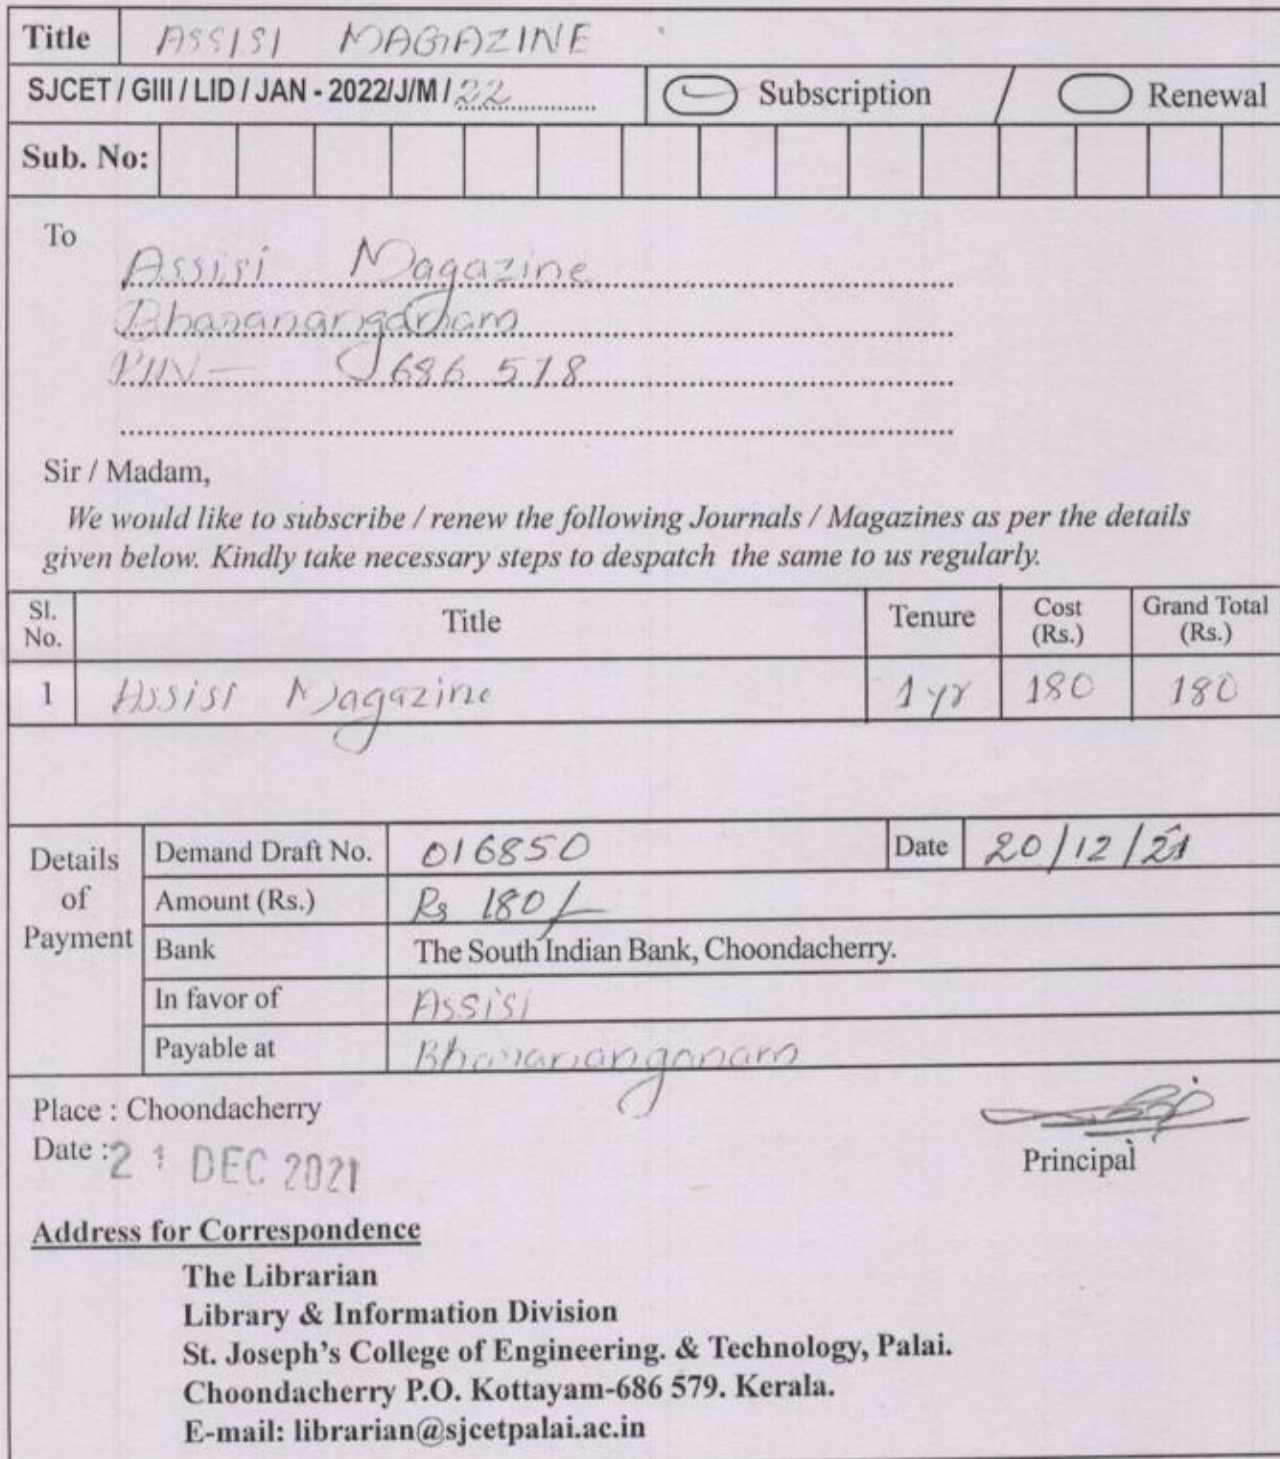 Title ASSISI MAGAZINE
SJCET / GIII / LID / JAN - 2022/J/M / 22 Subscription / Renewal
Sub. No:
To
Assisi Magazine
Bharananganam
PIN — 686 578
Sir / Madam,
We would like to subscribe / renew the following Journals / Magazines as per the details
given below. Kindly take necessary steps to despatch the same to us regularly.
Sl. No. Title Tenure Cost (Rs.) Grand Total (Rs.)
1 Assisi Magazine 1 yr 180 180
Details of Payment
Demand Draft No. 016850 Date 20/12/21
Amount (Rs.) Rs 180/-
Bank The South Indian Bank, Choondacherry.
In favor of Assisi
Payable at Bharananganam
Place : Choondacherry
Date : 21 DEC 2021
Principal
Address for Correspondence
The Librarian
Library & Information Division
St. Joseph's College of Engineering. & Technology, Palai.
Choondacherry P.O. Kottayam-686 579. Kerala.
E-mail: librarian@sjcetpalai.ac.in